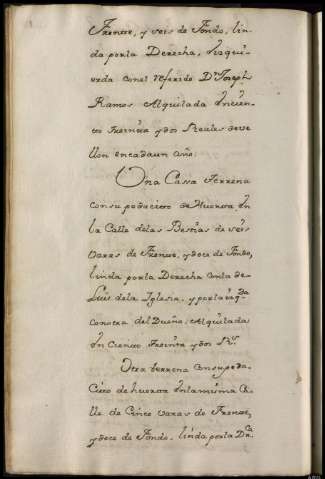 Frente, y seis de Fondo, lin-
da porla Derecha, Ysqui-
erda con el referido Dn Joseph
Ramos Alquilada Incien-
to treinta y dos Reales deve
llon encadaun año.
Una Cassa terrena
consu pedacito de Huerta In
la Calle delas Bestias de seis
varas de Frente, y doce de Fondo,
linda porla Derecha conla de
Luis dela Iglesia, y porla izqda
conotra del Dueño: Alquilada
In Ciento treinta y dos Rs.
Otra terrena consu peda-
cito de huerta Inla misma Ca-
lle de Cinco varas de Frente,
y doce de Fondo, linda porla Dra